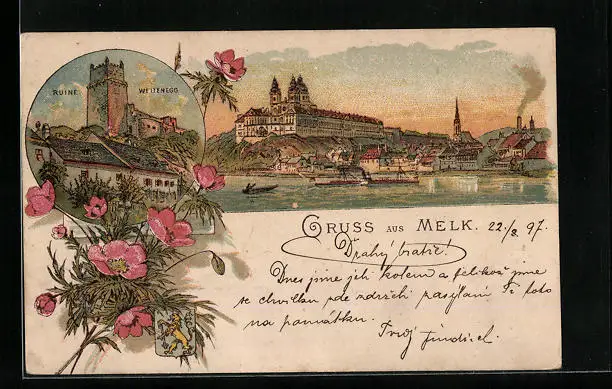 RUINE WEITENEGG
GRUSS AUS MELK. 22/8. 97.
Drahý bratře!
Dnes jsme jeli kolem a jelikož jsme
se chvilku zde zdrželi posýlám Ti toto
na památku.
Tvůj Jindřich.